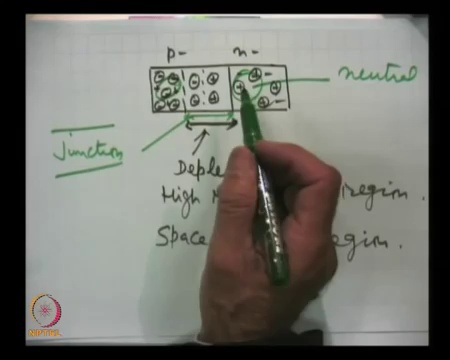 p- n-
neutral
Junction
Deple
High region.
Space egion.
NPTEL